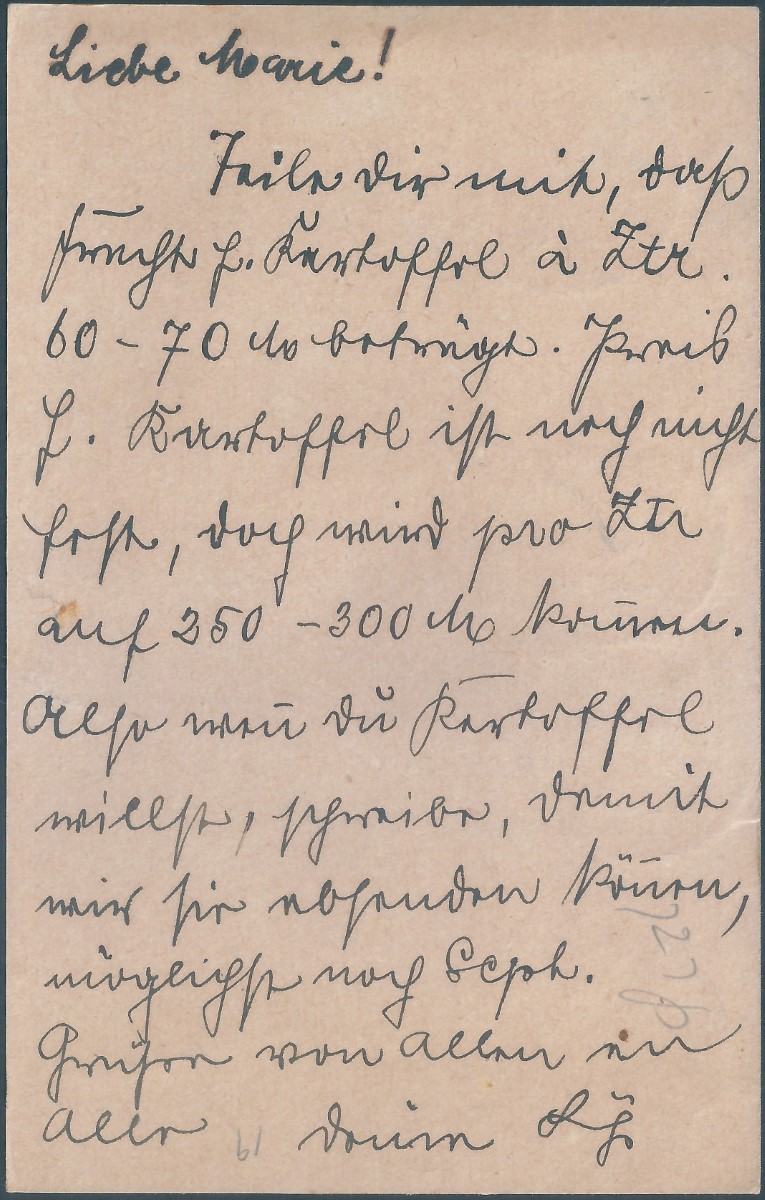 Liebe Marie!
Teile dir mit, daß
Fracht f. Kartoffel à Ztr.
60 – 70 M beträgt. Preis
f. Kartoffel ist noch nicht
fest, doch wird pro Ztr
auf 250 – 300 M kom̅en.
Also wen̅ du Kartoffel
willst, schreibe, damit
wir sie absenden kön̅en,
möglichst noch Sept.
Grüße von allen an
Alle deine
19